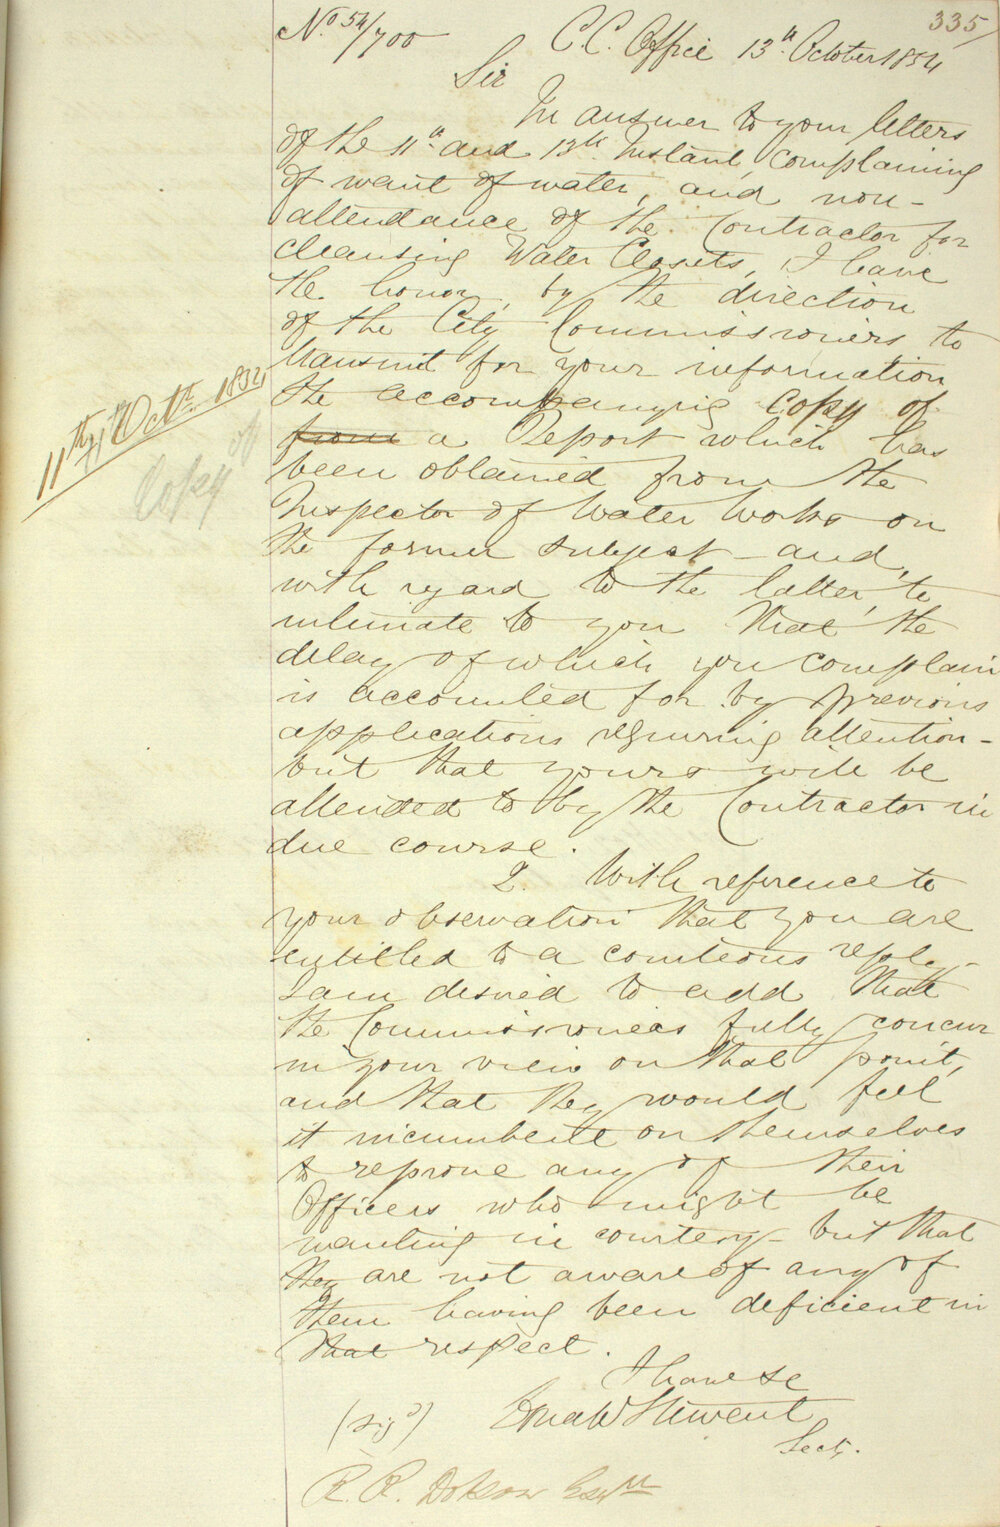 335
No 54/700 C.C. Office 13th October 1854
Sir
In answer to your letters
of the 11th and 13th Instant, complaining
of want of water, and non-
attendance of the Contractor for
cleansing Water Closets, I have
the honor, by the direction
of the City Commissioners to
transmit for your information
the accompanying Copy of
from a Report which has
been obtained from the
Inspector of Water Works on
the former subject - and,
with regard to the latter, to
intimate to you that the
delay of which you complain
is accounted for by previous
applications requiring attention -
but that yours will be
attended to by the Contractor in
due course.
2. With reference to
your observation that you are
entitled to a courteous reply -
I am desired to add that
the Commissioners fully concur
in your view on that point,
and that they would feel
it incumbent on themselves
to reprove any of their
Officers who might be
wanting in courtesy - but that
they are not aware of any of
them having been deficient in
that respect.
I have &c
(sigd) Stewart
Secty.
R. R. Esqre
11th Octr. 1854
Copy of